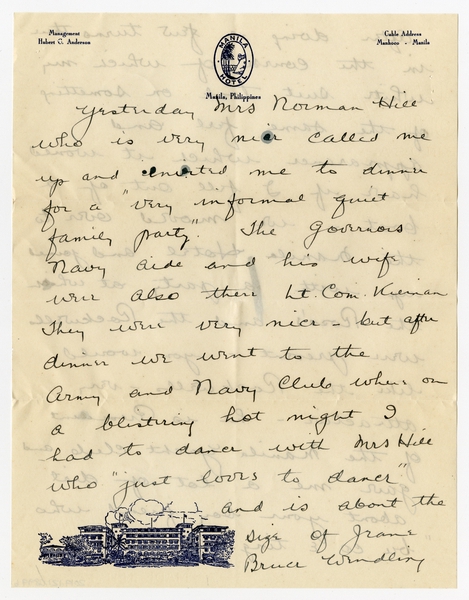 Management
Hubert C. Anderson
MANILA HOTEL
Manila, Philippines
Cable Address
Manhoco - Manila
Yesterday Mrs Norman Hill
who is very nice called me
up and invited me to dinner
for a "very informal quiet
family party." The Governors
Navy aide and his wife
were also there Lt. Com. Kiernan
They were very nice - but after
dinner we went to the
Army and Navy Club where on
a blistering hot night I
had to dance with Mrs Hill
who "just loves to dance"
and is about the
size of Jeane
Bruce Wendling